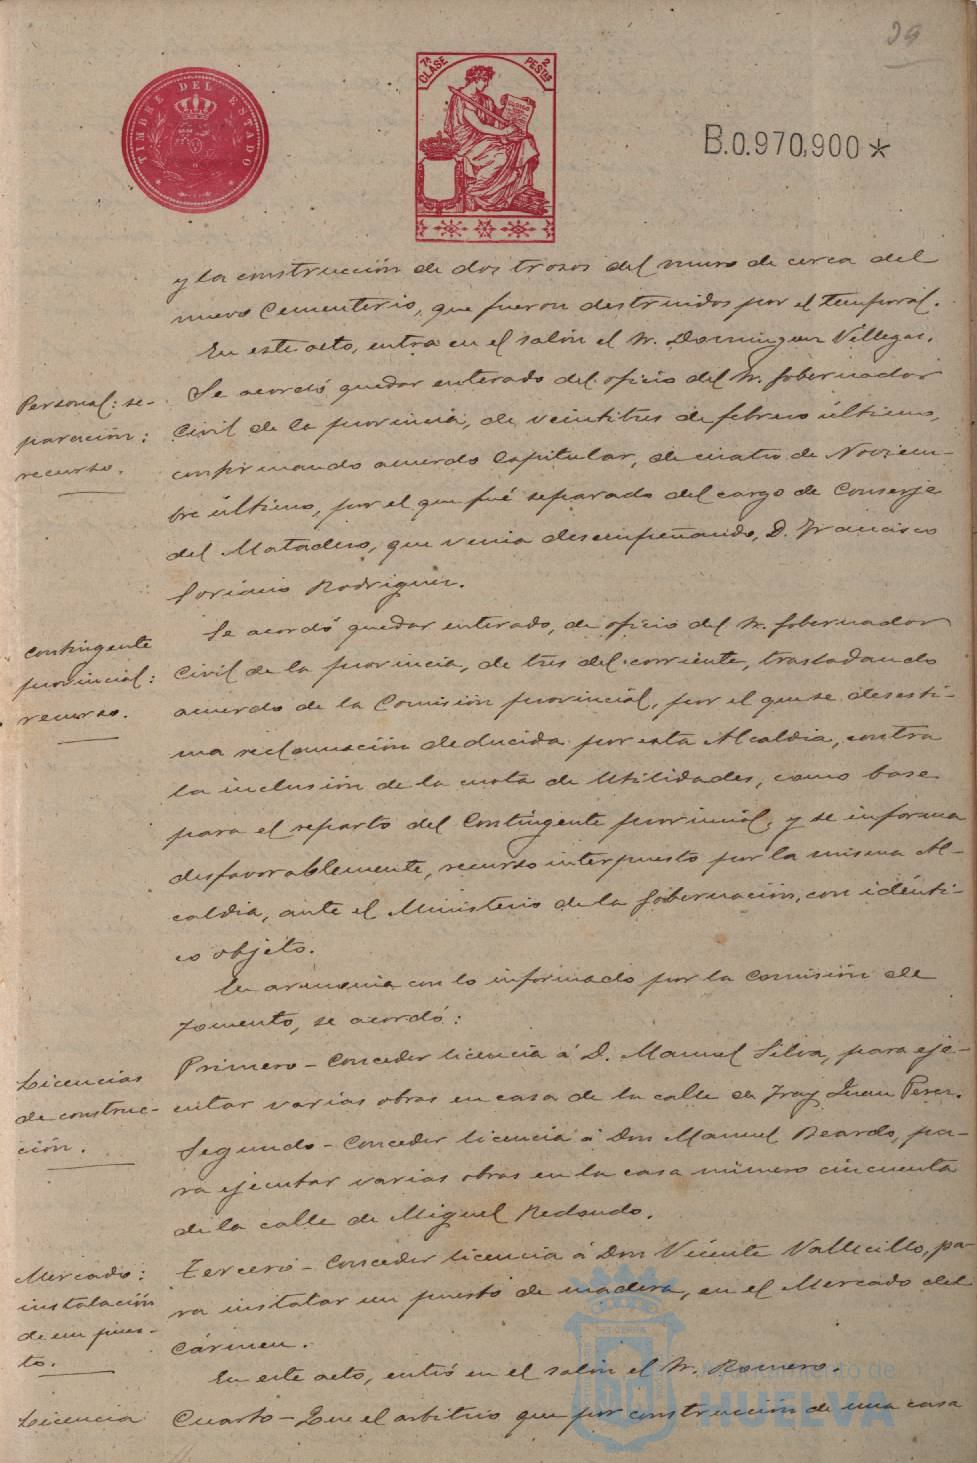 39
TIMBRE DEL ESTADO
7ª CLASE
2 PESTAS
B.0.970,900*
y la construcción de dos trozos del muro de cerca del
nuevo Cementerio, que fueron destruidos por el temporal.
En este acto, entra en el salón el Sr. Dominguez Villegas.
Personal: se-
paración:
recurso.
Se acordó quedar enterado del oficio del Sr. Gobernador
Civil de la provincia, de veintitres de febrero último,
confirmando acuerdo Capitular, de cuatro de Noviem-
bre último, por el que fué separado del cargo de Conserje
del Matadero, que venia desempeñando, D. Francisco
Soriano Rodriguez.
Contingente
provincial:
recurso.
Se acordó quedar enterado, de oficio del Sr. Gobernador
Civil de la provincia, de tres del corriente, trasladando
acuerdo de la Comisión provincial, por el que se desesti-
ma reclamación deducida por esta Alcaldia, contra
la inclusión de la cuota de Utilidades, como base
para el reparto del Contingente provincial; y se informa
desfavorablemente, recurso interpuesto por la misma Al-
caldia, ante el Ministerio de la Gobernación, con idénti-
co objeto.
En armonia con lo informado por la Comisión de
Fomento, se acordó:
Licencias
de construc-
ción.
Primero - Conceder licencia á D. Manuel Silva, para eje-
cutar varias obras en casa de la calle de Fray Juan Perez.
Segundo - Conceder licencia á Don Manuel Beardo, pa-
ra ejecutar varias obras en la casa número cincuenta
de la calle de Miguel Redondo.
Mercado:
instalación
de un pues-
to.
Tercero - Conceder licencia á Don Vicente Vallecillo, pa-
ra instalar un puesto de madera, en el Mercado del
Cármen.
En este acto, entró en el salón el Sr. Romero.
Licencia
Cuarto - Que el arbitrio que por construcción de una casa
Ayuntamiento de
HUELVA